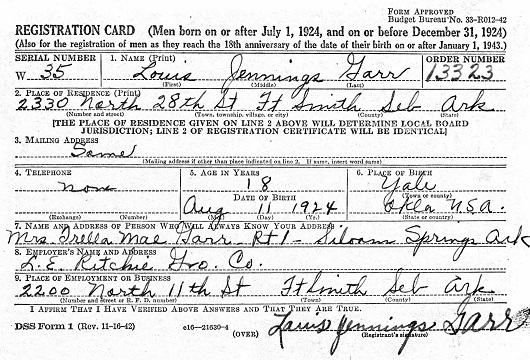 FORM APPROVED
Budget Bureau No. 33-R012-42
REGISTRATION CARD (Men born on or after July 1, 1924, and on or before December 31, 1924)
(Also for the registration of men as they reach the 18th anniversary of the date of their birth on or after January 1, 1943.)
SERIAL NUMBER 1. NAME (Print) ORDER NUMBER
W 35 Louis Jennings Garr 13323
(First) (Middle) (Last)
2. PLACE OF RESIDENCE (Print)
2330 North 28th St Ft Smith Seb Ark
(Number and street) (Town, township, village, or city) (County) (State)
[THE PLACE OF RESIDENCE GIVEN ON LINE 2 ABOVE WILL DETERMINE LOCAL BOARD
JURISDICTION; LINE 2 OF REGISTRATION CERTIFICATE WILL BE IDENTICAL]
3. MAILING ADDRESS
Same
(Mailing address if other than place indicated on line 2. If same, insert word same)
4. TELEPHONE 5. AGE IN YEARS 6. PLACE OF BIRTH
none 18 Yale
DATE OF BIRTH (Town or county)
Aug 11 1924 Okla U.S.A.
(Exchange) (Number) (Mo.) (Day) (Yr.) (State or country)
7. NAME AND ADDRESS OF PERSON WHO WILL ALWAYS KNOW YOUR ADDRESS
Mrs. Trella Mae Garr - Rt 1 - Siloam Springs Ark
8. EMPLOYER'S NAME AND ADDRESS
L.E. Ritchie Gro. Co.
9. PLACE OF EMPLOYMENT OR BUSINESS
2200 North 11th St Ft Smith Seb Ark
(Number and street or R. F. D. number) (Town) (County) (State)
I AFFIRM THAT I HAVE VERIFIED ABOVE ANSWERS AND THAT THEY ARE TRUE.
DSS Form 1 (Rev. 11-16-42) c16-21630-4 (OVER) Louis Jennings Garr
(Registrant's signature)